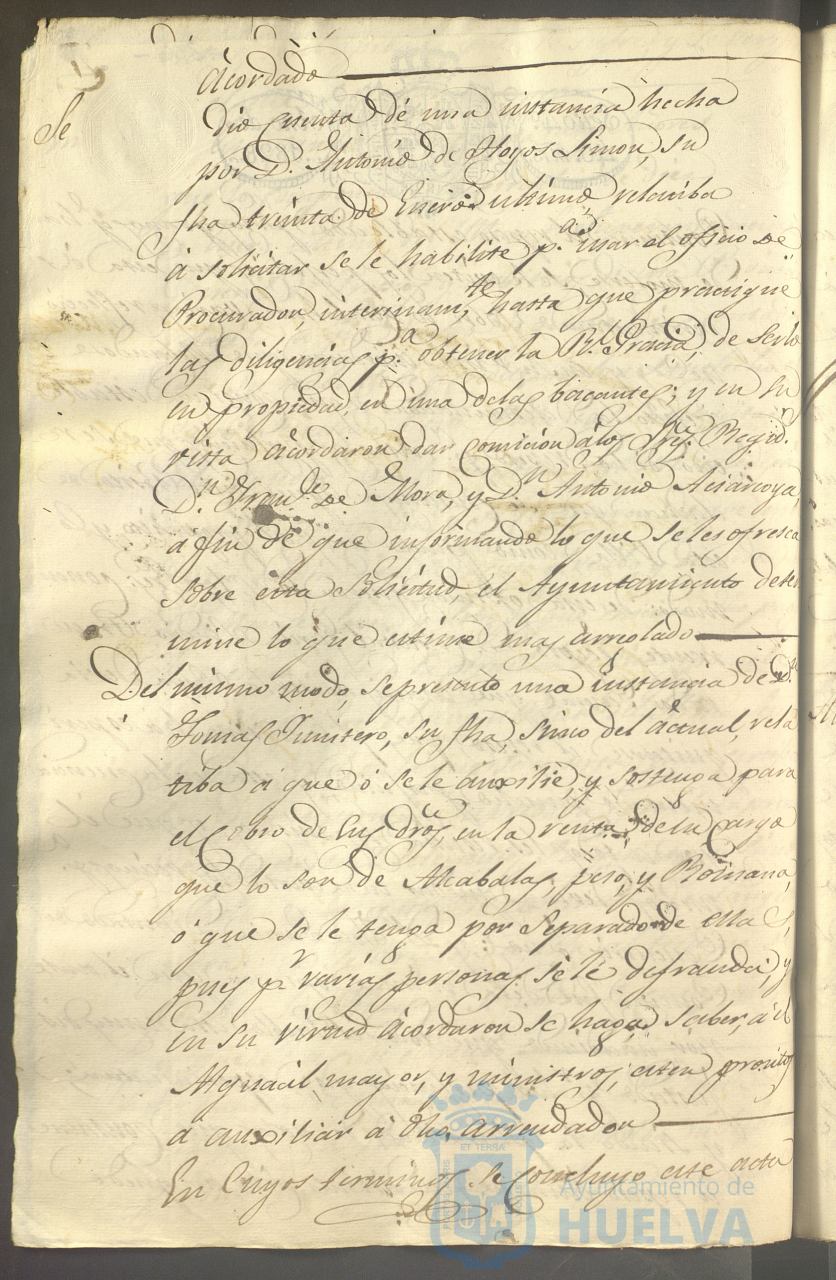 Acordado
Se
dió cuenta de una instancia hecha
por D. Antonio de Hoyos Limon, su
fha treinta de Enero ultimo relatiba
á solicitar se le habilite p.a usar el oficio de
Procurador, interinam.te hasta que practique
las diligencias p.a obtener la R.l Gracia, de serlo
en propiedad, en una delas bacantes; y en su
vista Acordaron dar comicion álos Sres. Regid.s
D.n Fran.co de Mora, y D.n Antonio
a fin de que informando lo que se les ofresca
sobre esta Solicitud, el Ayuntamiento deter
mine lo que estime mas arreglado
Del mismo modo, se presentó una instancia de D.n
Tomas Quintero, su fha, sinco del actual, rela
tiba a que ó se le auxilie, y sostenga para
el Cobro de sus dros, en la renta de su Cargo
que lo son de Alcabalas, peso, y Romana,
ó que se le tenga por separado de ella
pues p.r varias personas se le defrauda, y
en su virtud Acordaron se haga saber, á el
Alguacil mayor, y ministros, esten prontos
a auxiliar á dho. arrendador
En cuyos terminos se concluyo este acta
ET TERRA
Ayuntamiento de
HUELVA